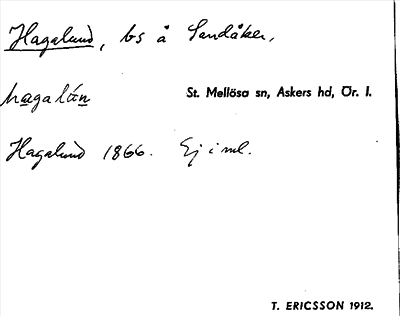 Hagalund, bs å Sandåker,
hagalún
St. Mellösa sn, Askers hd, Ör. l.
Hagalund 1866. Ej i ml.
T. ERICSSON 1912.